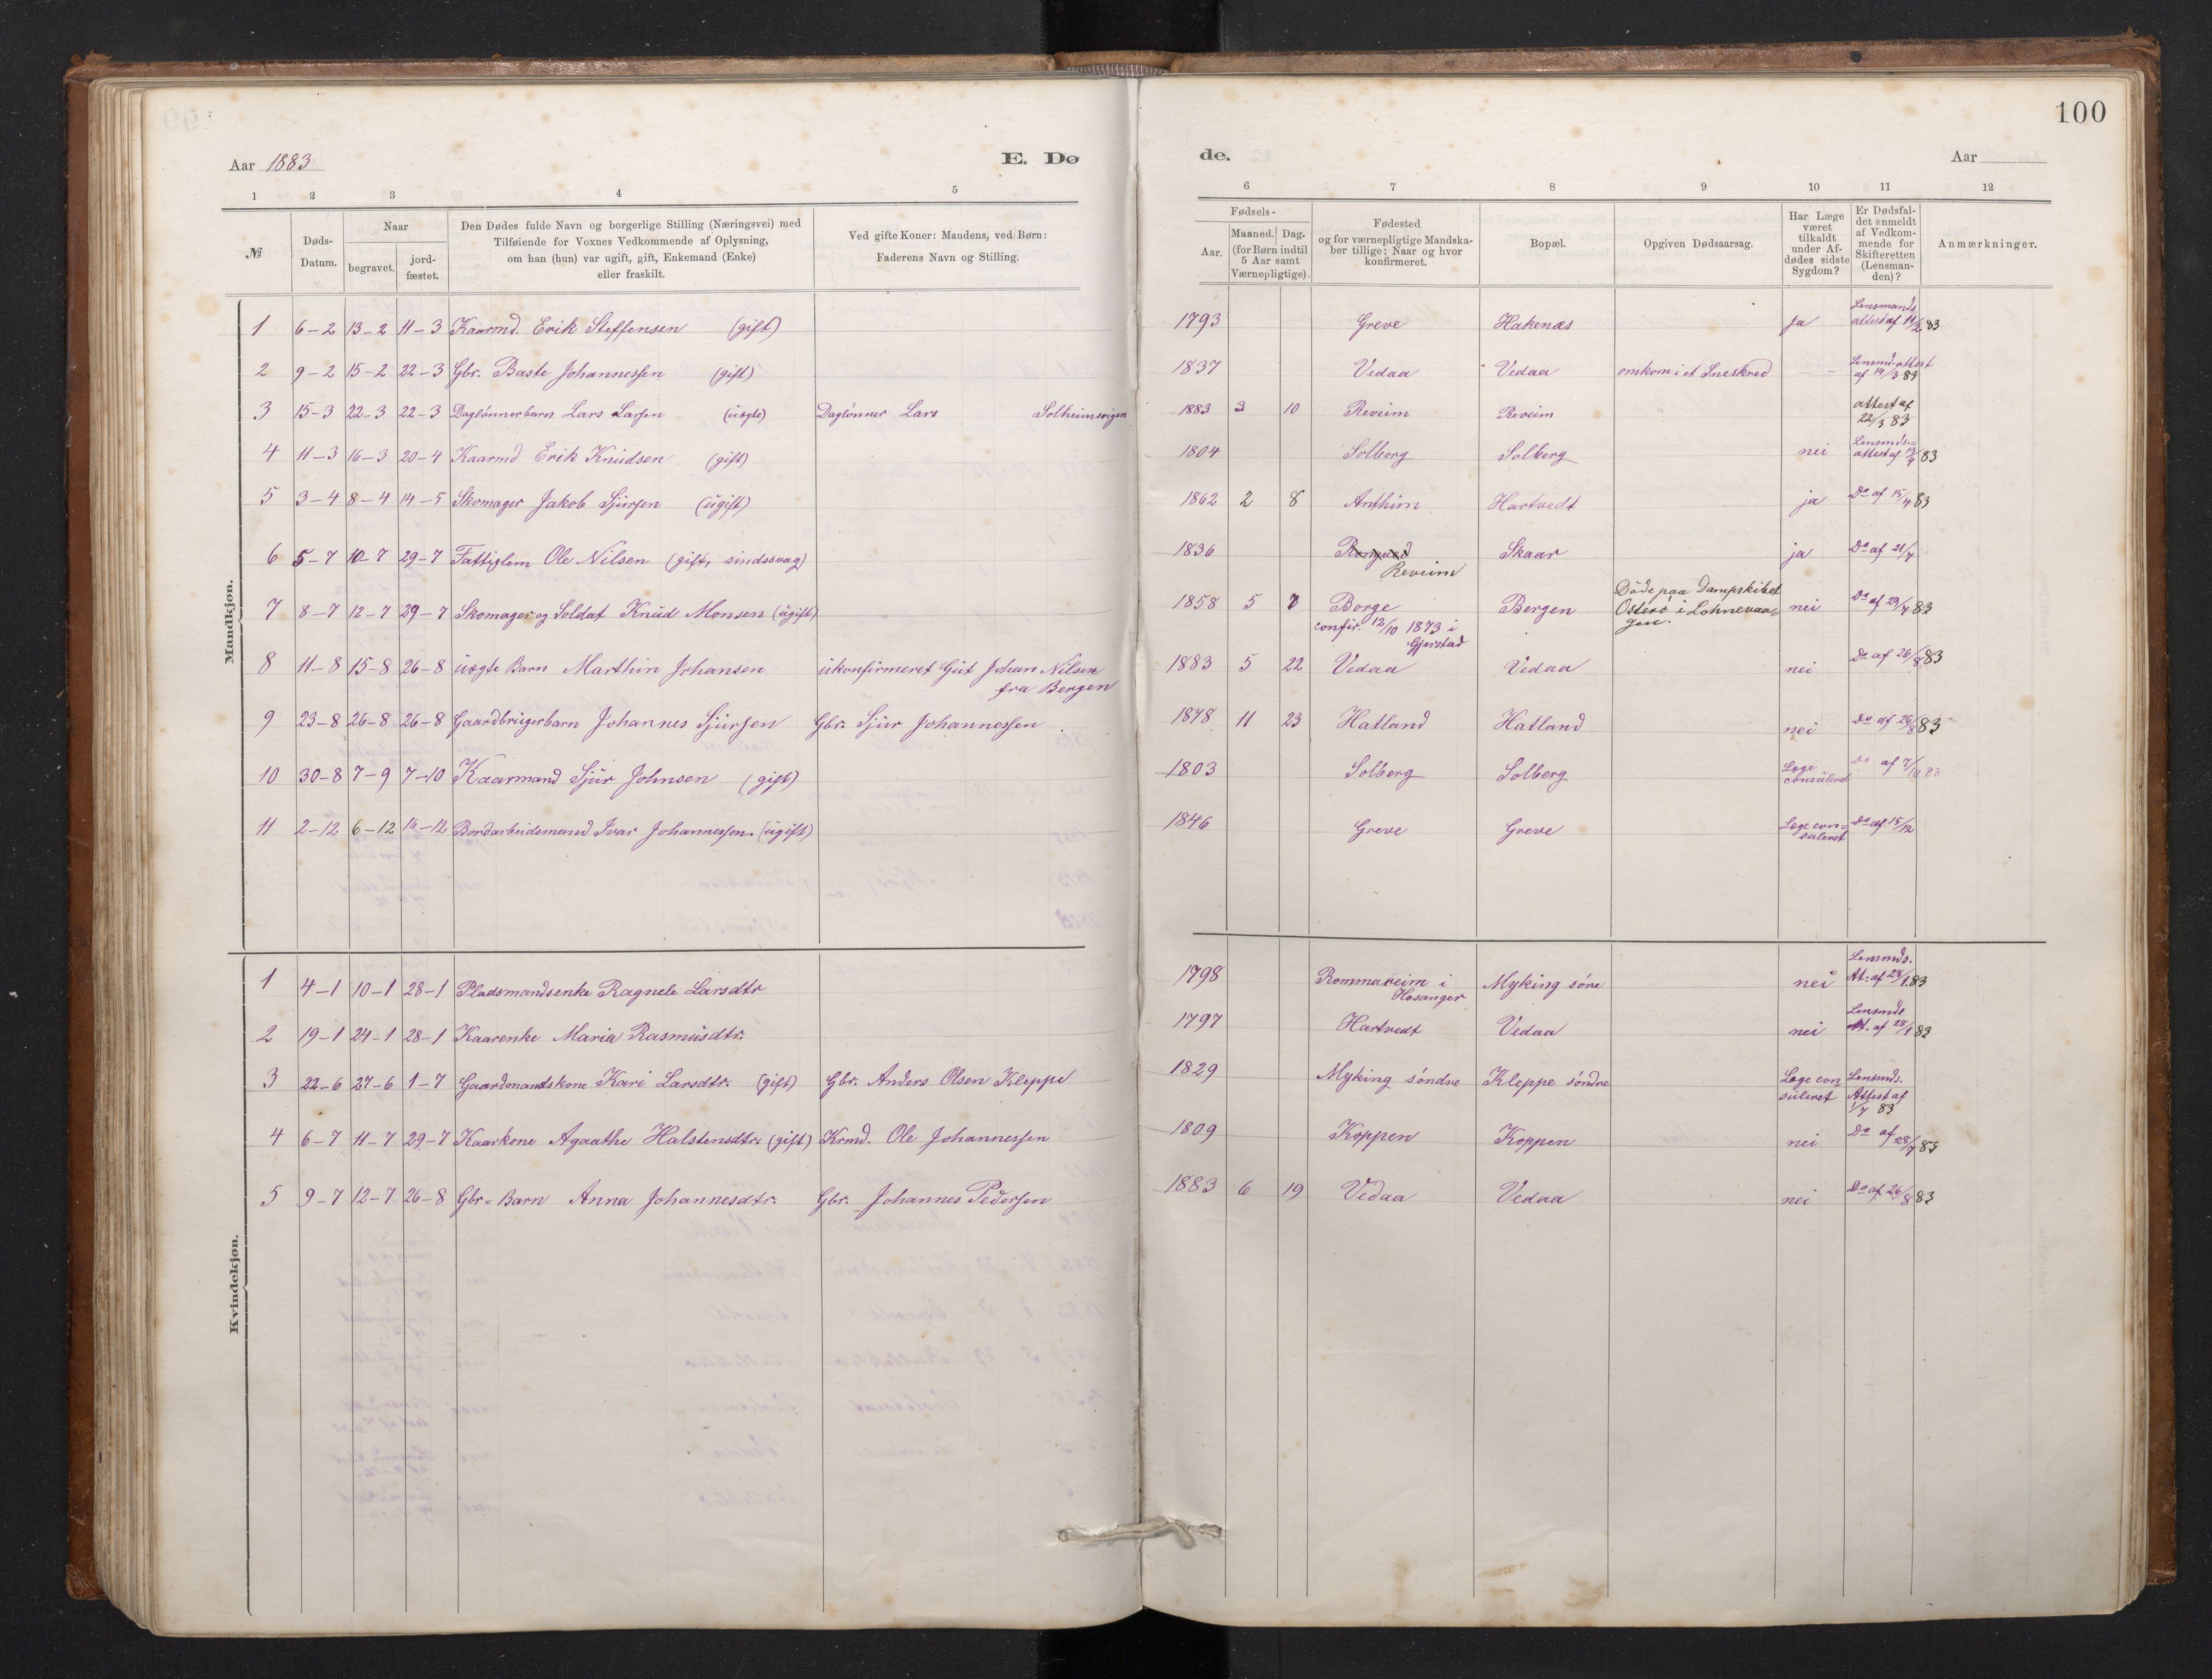 100
Aar 1883 E. Dø de. Aar
1 2 3 4 5 6 7 8 9 10 11 12
№
Døds-Datum.
Naar
begravet.
jord-fæstet.
Den Dødes fulde Navn og borgerlige Stilling (Næringsvei) med
Tilføiende for Voxnes Vedkommende af Oplysning,
om han (hun) var ugift, gift, Enkemand (Enke)
eller fraskilt.
Ved gifte Koner: Mandens, ved Børn:
Faderens Navn og Stilling.
Fødsels-
Aar.
Maaned. Dag.
(for Børn indtil
5 Aar samt
Værnepligtige).
Fødested
og for værnepligtige Mandska-
ber tillige: Naar og hvor
konfirmeret.
Bopæl.
Opgiven Dødsaarsag.
Har Læge
været
tilkaldt
under Af-
dødes sidste
Sygdom?
Er Dødsfal-
det anmeldt
af Vedkom-
mende for
Skifteretten
(Lensman-
den)?
Anmærkninger.
Mandkjøn.
1 6-2 13-2 11-3 Kaarmd. Erik Steffensen (gift) 1793 Greve Hakenæs Ja Lensmands attest af 14/2 83
2 9-2 15-2 22-3 Gbr. Baste Johannessen (gift) 1837 Vedaa Vedaa omkom i et Sneskred Lensmd. attest af 14/3 83
3 15-3 22-3 22-3 Daglønnerbarn Lars Larsen (uægte) Daglønner Lars Solheimsvigen 1883 3 10 Reveim Reveim attest af 22/3 83
4 11-3 16-3 20-4 Kaarmd Erik Knudsen (gift) 1804 Solberg Solberg nei Lensmds.= attest af 83
5 3-4 8-4 14-5 Skomager Jakob Sjursen (ugift) 1862 2 8 Anthun Hartvedt ja Do af 15/4 83
6 5-7 10-7 29-7 Fattiglem Ole Nilsen (gift, sindssvag) 1836 Reveim Skaar ja Do af 21/7
7 8-7 12-7 29-7 Skomager og Soldat Knud Monsen (ugift) 1858 5 7 Borge confir. 12/10 1873 i Gjerstad Bergen Døde paa Dampskibet Osterø i Lohnevaa=gen. nei Do af 29/7 83
8 11-8 15-8 26-8 uægte Barn Marthin Johansen ukonfirmeret Gut Johan Nilsen fra Bergen 1883 5 22 Vedaa Vedaa nei Do af 26/8 83
9 23-8 26-8 26-8 Gaardbrugerbarn Johannes Sjursen Gbr. Sjur Johannessen 1878 11 23 Hatland Hatland nei Do af 26/8 83
10 30-8 7-9 7-10 Kaarmand Sjur Johnsen (gift) 1803 Solberg Solberg Læge consuleret Do af 7/10 83
11 2-12 6-12 16-12 Bordarbeidsmand Ivar Johannessen. (ugift) 1846 Greve Greve Læge con=suleret Do af 15/12
Kvindekjøn.
1 4-1 10-1 28-1 Pladsmandsenke Ragnele Larsdtr 1798 Rommareim i Hosanger Myking søre nei Lensmds. At. af 28/1 83
2 19-1 24-1 28-1 Kaarenke Maria Rasmusdtr. 1797 Hartvedt Vedaa nei Lensmds At. af 28/1 83
3 22-6 27-6 1-7 Gaardmandskone Kari Larsdtr. (gift) Gbr. Anders Olsen Kleppe 1829 Myking søndre Kleppe søndre Læge con=suleret Lensmds. Attest af 1/7 83
4 6-7 11-7 29-7 Kaarkone Agaathe Halstensdtr. (gift) Krmd. Ole Johannessen 1809 Koppen Koppen nei Do af 28/7 83
5 9-7 12-7 26-8 Gbr.=Barn Anna Johannesdtr. Gbr. Johannes Pedersen 1883 6 19 Vedaa Vedaa nei Do af 26/8 83